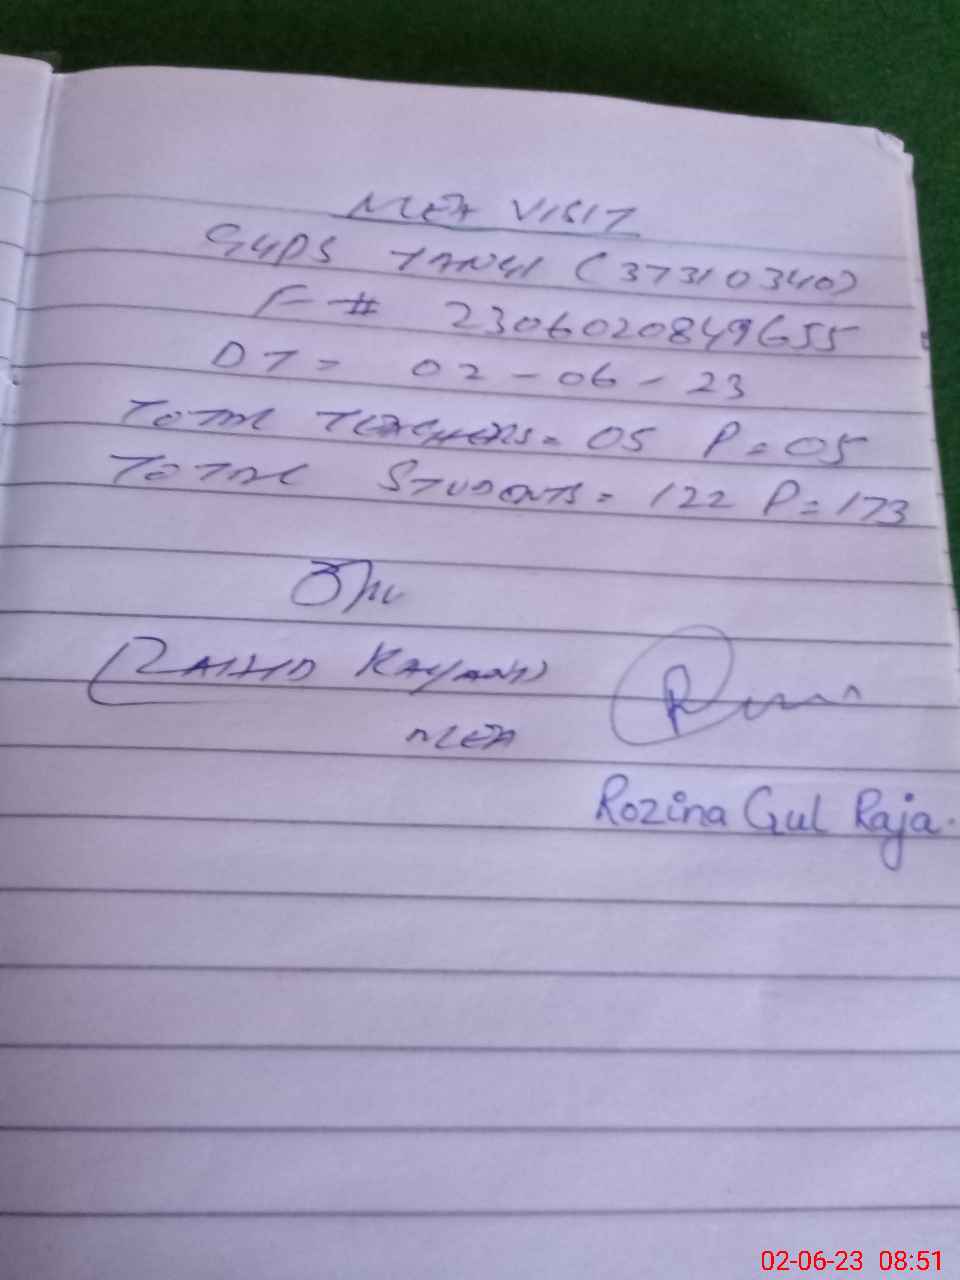 MEA VISIT
GGPS TANGI (37310340)
F # 2306020849655
DT = 02-06-23
TOTAL TEACHERS = 05 P = 05
TOTAL STUDENTS = 122 P = 173
(ZAHID KAYANI)
MEA
Rozina Gul Raja.
02-06-23 08:51